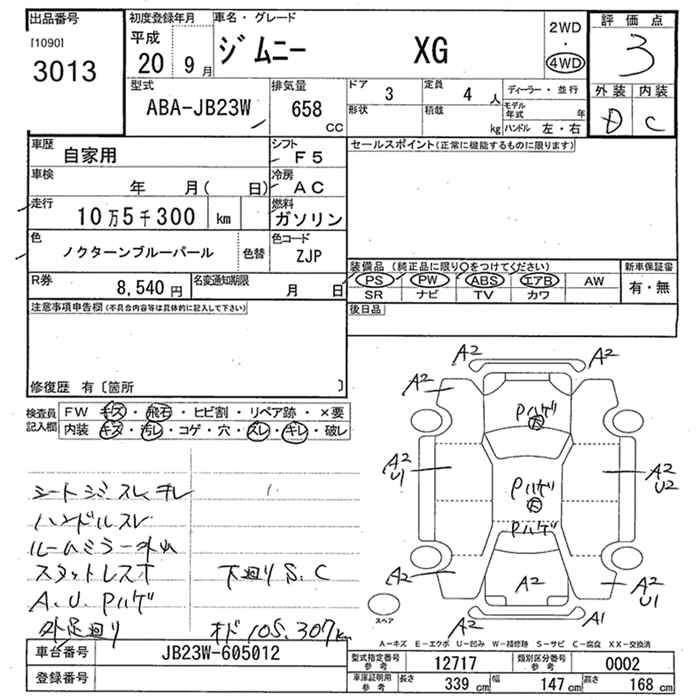 出品番号
[1090]
3013
初度登録年月
平成
20 9月
車名・グレード
ジムニー XG
2WD
・
4WD
評価点
3
外装 内装
D C
型式
ABA-JB23W
排気量
658
CC
ドア
3
定員
4 人
形状
積載
kg
ディーラー・並行
モデル
年式 年
ハンドル 左・右
車歴
自家用
シフト
F5
車検
年 月( 日)
冷房
AC
走行
10万5千300 km
燃料
ガソリン
色
ノクターンブルーパール
色替
色コード
ZJP
R券
8,540 円
名変通知期限
月 日
セールスポイント(正常に機能するものに限ります)
装備品 (純正品に限り〇をつけてください)
PS PW ABS エアB AW
SR ナビ TV カワ
新車保証書
有・無
後日品
注意事項申告欄(不具合内容等は具体的に記入して下さい)
修復歴 有〔箇所 〕
検査員
記入欄
FW キズ・飛石・ヒビ割・リペア跡・×要
内装 キズ・汚レ・コゲ・穴・スレ・キレ・破レ
シートシミ スレ キレ
ハンドルスレ
ルームミラー外レ
スタットレス オ
下廻り S.C
A.U.Pハゲ
外足廻り
オド 105.307km
A2 A2
A2
Pハゲ
大
A2
U1
A2
U2
Pハゲ
大
Pハゲ
A2
A2
A2
U1
A2 A1
スペア
A-キズ E-エクボ U-凹み W-補修跡 S-サビ C-腐食 XX-交換済
車台番号
JB23W-605012
登録番号
型式指定番号
参考
12717
類別区分番号
参考
0002
車庫証明用
参考
長さ
339 cm
幅
147 cm
高さ
168 cm